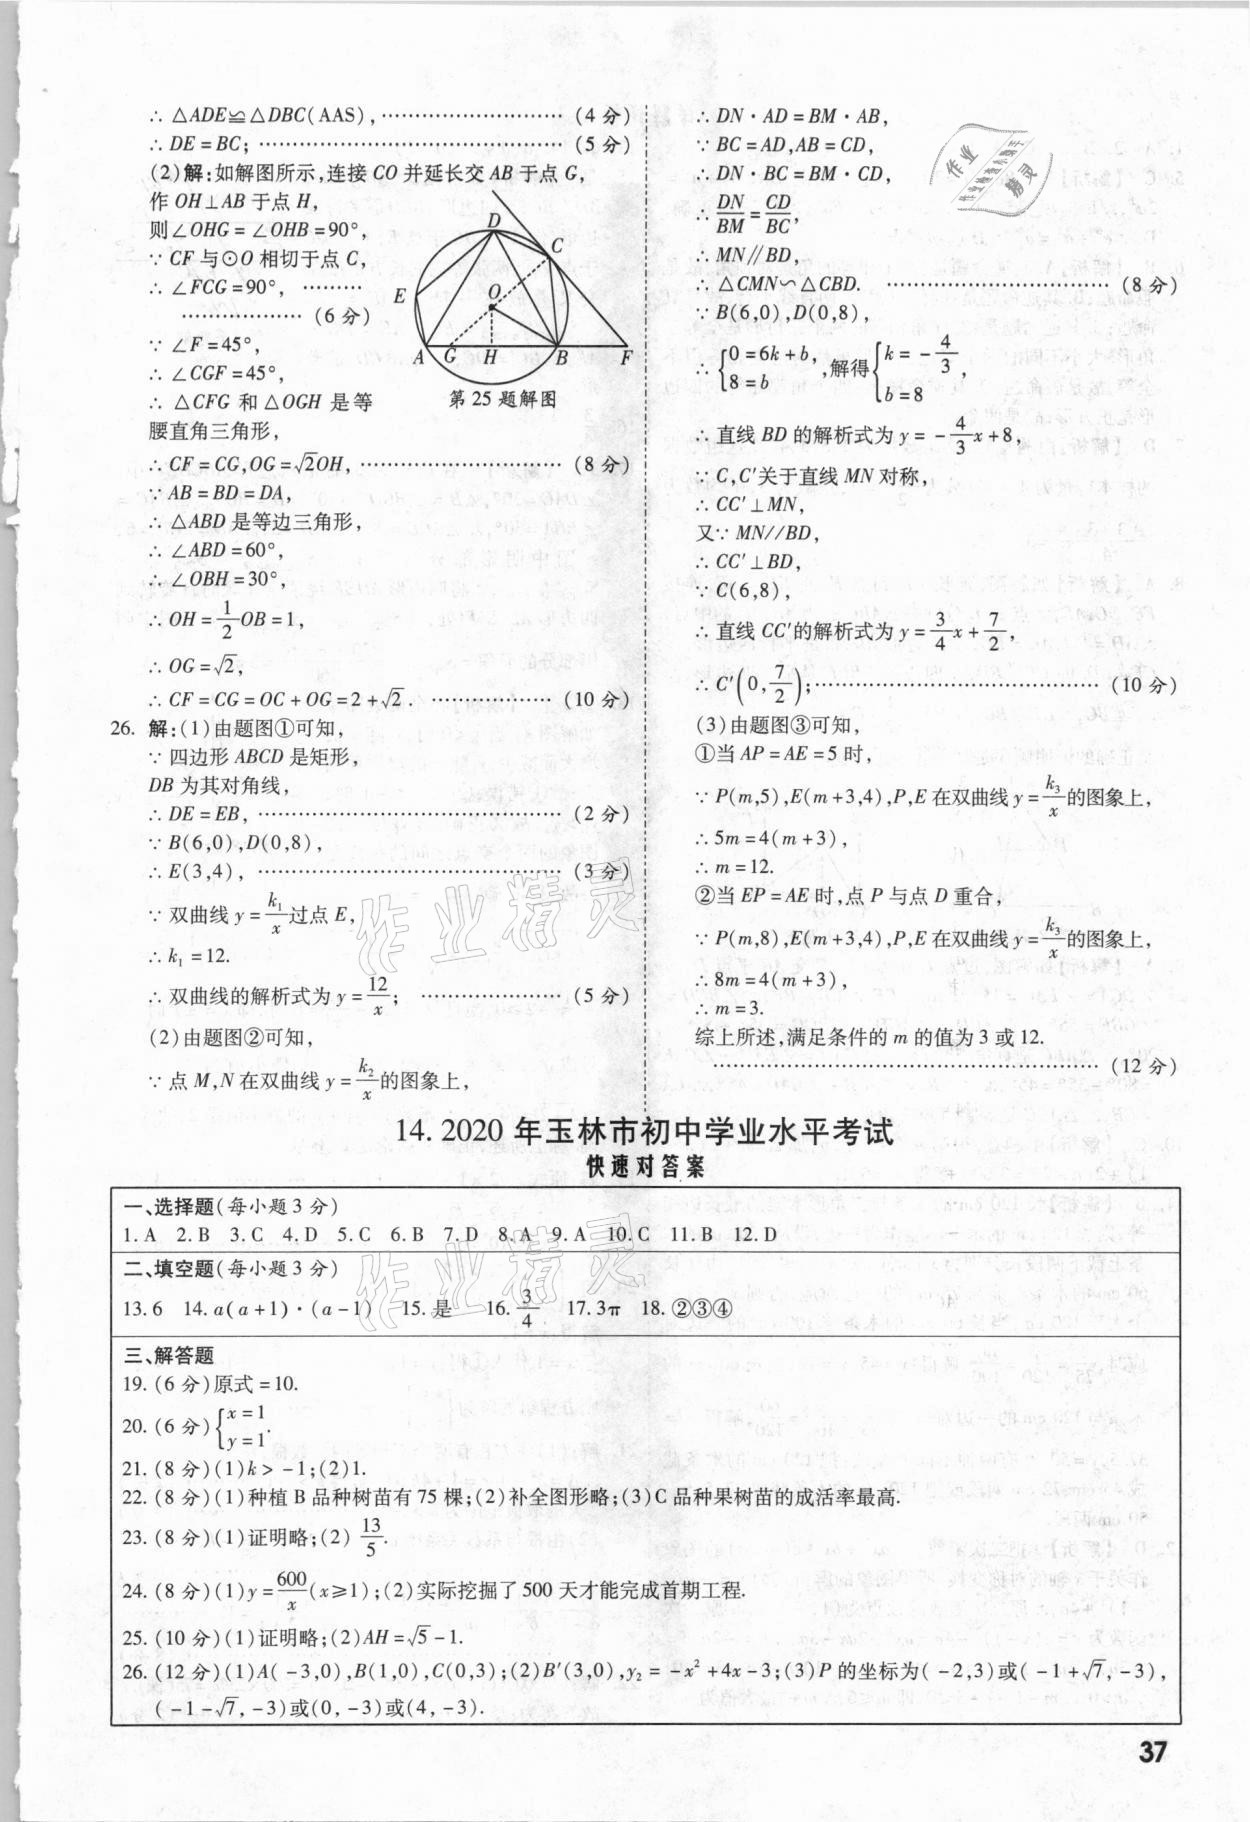 ∴ △ADE≌△DBC(AAS), ………… (4 分)
∴ DE=BC; ………… (5 分)
(2)解:如解图所示,连接 CO 并延长交 AB 于点 G,
作 OH⊥AB 于点 H,
则∠OHG=∠OHB=90°,
∵ CF 与⊙O 相切于点 C,
∴ ∠FCG=90°, ………
……………… (6 分)
∵ ∠F=45°,
∴ ∠CGF=45°,
∴ △CFG 和△OGH 是等
腰直角三角形,
D
C
E
O
A G H B F
第 25 题解图
∴ CF=CG,OG=√2OH, ………… (8 分)
∵ AB=BD=DA,
∴ △ABD 是等边三角形,
∴ ∠ABD=60°,
∴ ∠OBH=30°,
∴ OH=1/2OB=1,
∴ OG=√2,
∴ CF=CG=OC+OG=2+√2. ………… (10 分)
26. 解:(1)由题图①可知,
∵ 四边形 ABCD 是矩形,
DB 为其对角线,
∴ DE=EB, ………… (2 分)
∵ B(6,0),D(0,8),
∴ E(3,4), ………… (3 分)
∵ 双曲线 y=k₁/x过点 E,
∴ k₁=12.
∴ 双曲线的解析式为 y=12/x; ………… (5 分)
(2)由题图②可知,
∵ 点 M,N 在双曲线 y=k₂/x的图象上,
∴ DN·AD=BM·AB,
∵ BC=AD,AB=CD,
∴ DN·BC=BM·CD,
∴ DN/BM=CD/BC,
∴ MN∥BD,
∴ △CMN∽△CBD. ………… (8 分)
∵ B(6,0),D(0,8),
∴ {0=6k+b, 8=b ,解得{k=-4/3, b=8
∴ 直线 BD 的解析式为 y=-4/3x+8,
∵ C,C′关于直线 MN 对称,
∴ CC′⊥MN,
又∵ MN//BD,
∴ CC′⊥BD,
∵ C(6,8),
∴ 直线 CC′的解析式为 y=3/4x+7/2,
∴ C′(0,7/2); ………… (10 分)
(3)由题图③可知,
①当 AP=AE=5 时,
∵ P(m,5),E(m+3,4),P,E 在双曲线 y=k₃/x的图象上,
∴ 5m=4(m+3),
∴ m=12.
②当 EP=AE 时,点 P 与点 D 重合,
∵ P(m,8),E(m+3,4),P,E 在双曲线 y=k₃/x的图象上,
∴ 8m=4(m+3),
∴ m=3.
综上所述,满足条件的 m 的值为 3 或 12.
………… (12 分)
14. 2020 年玉林市初中学业水平考试
快速对答案
一、选择题(每小题 3 分)
1. A 2. B 3. C 4. D 5. C 6. B 7. D 8. A 9. A 10. C 11. B 12. D
二、填空题(每小题 3 分)
13. 6 14. a(a+1)·(a-1) 15. 是 16. 3/4 17. 3π 18. ②③④
三、解答题
19. (6 分)原式=10.
20. (6 分){x=1 y=1.
21. (8 分)(1)k>-1;(2)1.
22. (8 分)(1)种植 B 品种树苗有 75 棵;(2)补全图形略;(3)C 品种果树苗的成活率最高.
23. (8 分)(1)证明略;(2) 13/5.
24. (8 分)(1)y=600/x(x≥1);(2)实际挖掘了 500 天才能完成首期工程.
25. (10 分)(1)证明略;(2)AH=√5-1.
26. (12 分)(1)A(-3,0),B(1,0),C(0,3);(2)B′(3,0),y₂=-x²+4x-3;(3)P 的坐标为(-2,3)或(-1+√7,-3),
(-1-√7,-3)或(0,-3)或(4,-3).
37
作业精灵
作业精灵
作业
精灵